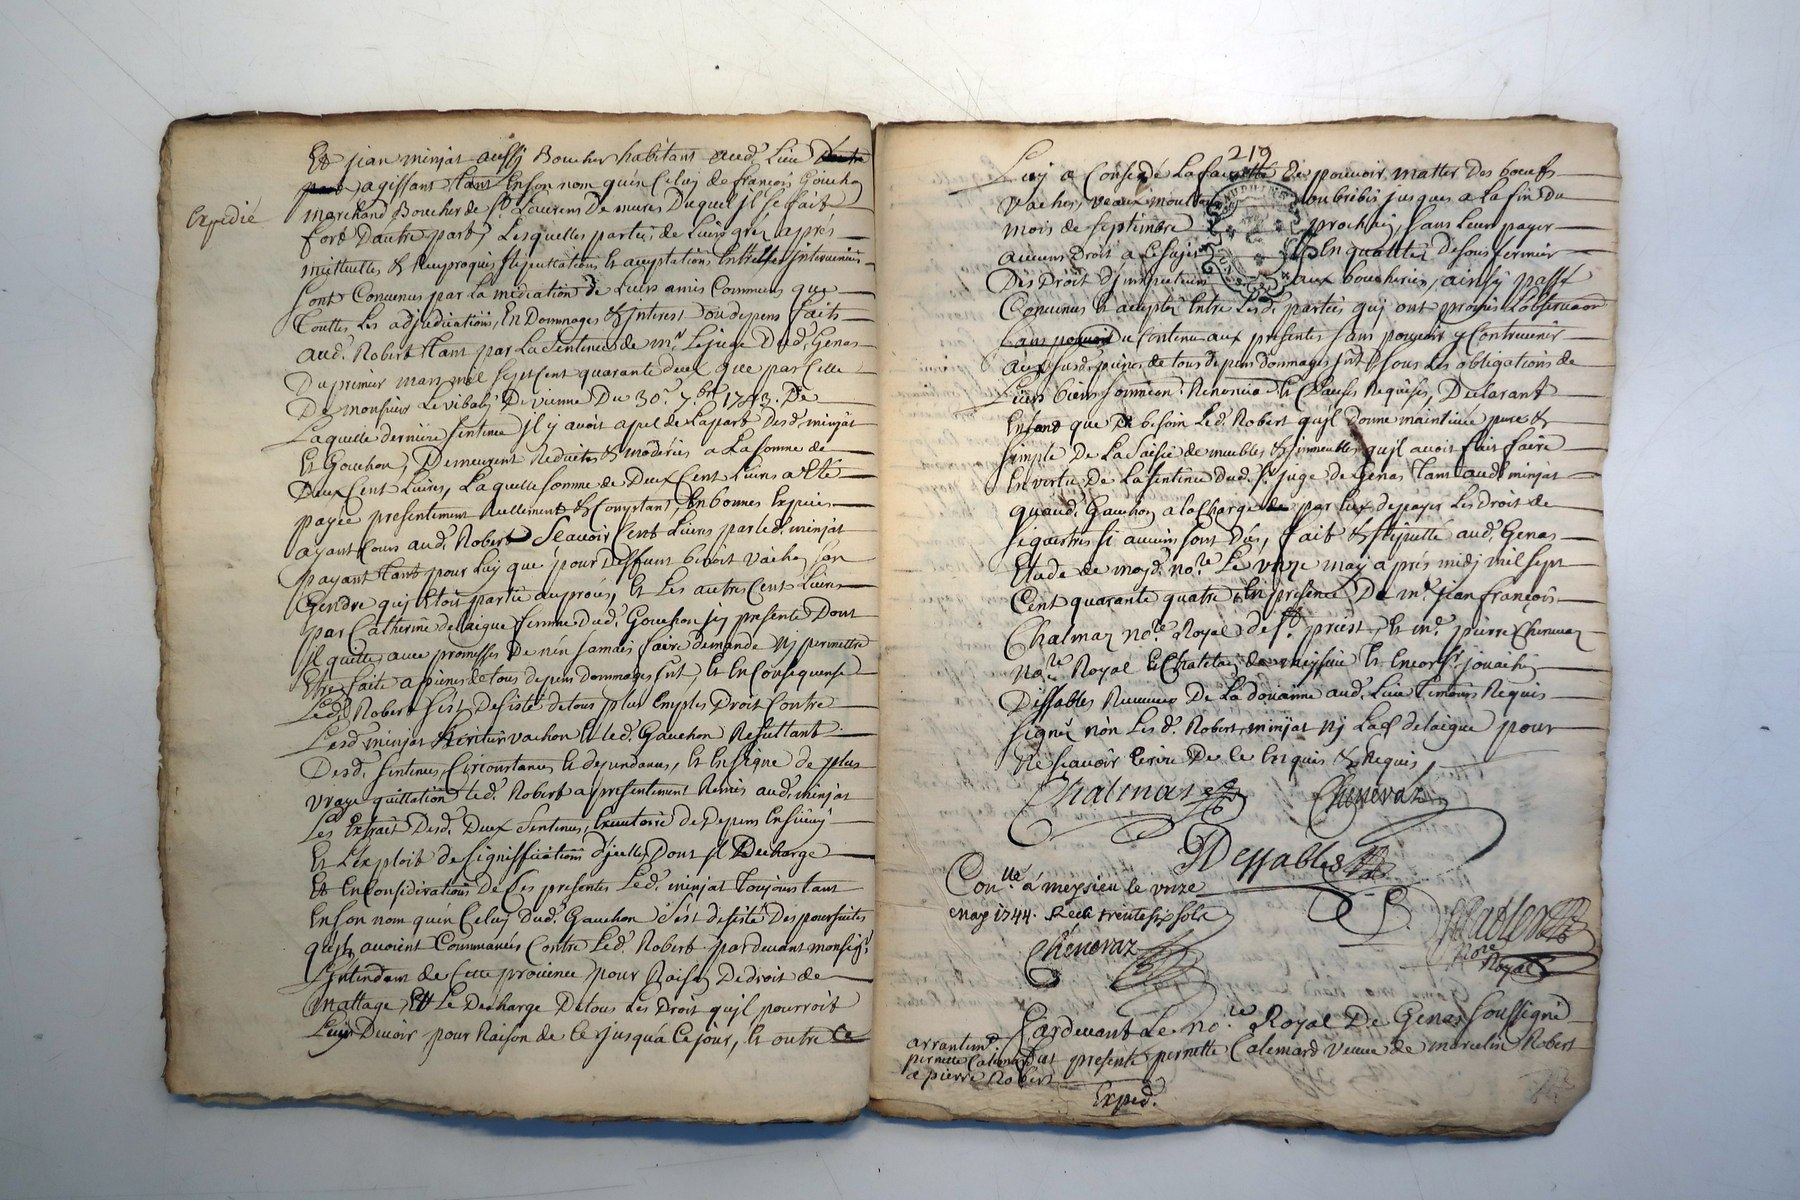 Et jean minjat aussy Boucher habitant aud. Lieu
agissant tant En son nom qu'en Celuy de françois Gouchon
Expedié
marchand Boucher de St Laurens De mures Duquel jl se fait
fort D'autre part, Lesquelles parties de Leurs grez aprés
mutuelles & reciproques stipulations Et acceptations Entrelles jntervenues
sont Convenus par La mediation de Leurs amis Communs que
touttes Les adjudications, En Dommages & jnterest ou depens faits
aud. Robert tant par La Sentence de mr. Le juge Dud. Genas
Du premier mars mil sept Cent quarante deux que par Celle
De monsieur Le vibaly De vienne Du 30e. 7bre 1743. De
Laquelle derniere sentence jl y avoit apel de La part Desd. minjat
Et Gouchon, Demeurent Reduites & moderées a La somme de
Deux Cent Livres, Laquelle somme de Deux Cent Livres a Eté
payée presentement Reellement & Comptant, En bonnes Especes
ayant Cours aud. Robert Scavoir Cent Livres par led. minjat
payant tant pour Luy que pour Deffunt benoit vachon son
Gendre quj Etoit partie au procés, Et Les autres Cent Livres
par Catherine delaigue femme dud. Gouchon jcy presente Dont
jl quitte avec promesses De n'en jamais faire demande Nj permettre
Etre faite a peines de tous depens dommages jnt, Et En Consequence
Led. Robert s'est Desisté de tous plus amples Droit Contre
Lesd. minjat heritiers vachon Et led. Gauchon Resultant
Desd. sentences, Circonstances Et dependances, Et En signe de plus
vraye quittation led. Robert a presentement Remis aud. minjat
Les Extrait Desd. Deux sentences, Executoire de Depens Ensuivy
Et L'exploit de signiffications d'jcelles Dont jl Decharge
Et En Considerations De Ces presentes Led. minjat toujours tant
En son nom qu'en Celuy dud. Gauchon s'est desisté Des poursuites
qu'ils avoient Commancées Contre Led. Robert pardevant monsigr.
L'jntendant de Cette province pour Raison De droit de
mattage Et Le Decharge De tous Les Droit qu'jl pourroit
Luy Devoir pour Raison de Ce jusqu'a Ce jour, Et outre Ce
219
Luy a Consedé La faculté De pouvoir matter Des boeufs
vaches, veaux moutons ou brebis jusques a La fin Du
mois de septembre prochain sans Leur payer
aucuns Droit a Ce sujet En qualité de sousfermier
Des Droit d'jnspecteurs aux boucheries, ainsy passé
Convenus Et accepté Entre Lesd. parties quj ont promis L'observation
Du Contenu aux presentes sans pouvoir y Contrevenir
aux susd. peines de tous depens dommages jnt sous Les obligations de
Leurs biens soumission Renonciation Et Clauses Requises, Declarant
En tant que De besoin Led. Robert qu'jl donne mainlevée pure &
simple De La saisie de meubles & jmmeubles qu'jl avoit fait faire
En vertu de La sentence Dud. sr. juge de Genas tant aud. minjat
quaud. Gauchon a la Charge par Eux de payer Les Droit de
sequestres si aucuns sont Dûs, fait & stipullé aud. Genas
Etude de moyd. nore. Le onze may aprés midj mil sept
Cent quarante quatre En présence De mr. jean françois
Chalmas nore. Royal de St. priest, Et mr. pierre Chenevaz
Nore. Royal Et Chatelain de meyssieu Et Encor sr. jouachin
Dessables Receveur De La doüanne aud. Lieu temoins Requis
signé non Lesd. Robert, minjat Nj Lad. delaigue pour
Ne scavoir Ecrire De Ce Enquis & Requis,
Chalmas Chenevaz
JDessables
Conllé. á meysieu le onze
may 1744. Receu trente six sols
Chénevaz
Nore
Royal
Pardevant Le nore. Royal De Genas soussigné
fut presente pernette Calemard veuve de marcelin Robert
arrantemt.
pernette Calemard
a pierre Robert
Exped.